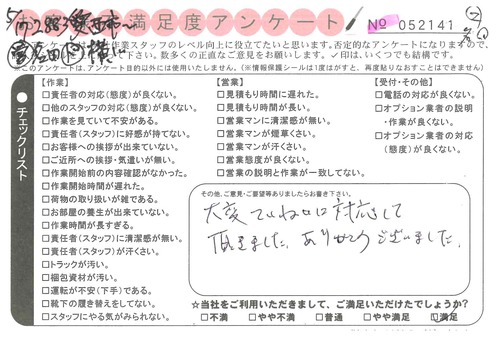 満足度アンケート
№ 052141
作業スタッフのレベル向上に役立てたいと思います。否定的なアンケートになりますので、
下さい。数多くの正直なご意見をお願いします。✓印は、いくつでも結構です。
※このアンケートは、アンケート目的以外には使用いたしません。(※情報保護シールは1度はがすと、再度貼りなおすことはできません)
●チェックリスト
【作業】
□責任者の対応(態度)が良くない。
□他のスタッフの対応(態度)が良くない。
□作業を見ていて不安がある。
□責任者(スタッフ)に好感が持てない。
□お客様への挨拶が出来ていない。
□ご近所への挨拶・気遣いが無い。
□作業開始前の内容確認がなかった。
□作業開始時間が遅れた。
□荷物の取り扱いが雑である。
□お部屋の養生が出来ていない。
□作業時間が長すぎる。
□責任者(スタッフ)に清潔感が無い。
□責任者(スタッフ)が汗くさい。
□トラックが汚い。
□梱包資材が汚い。
□運転が不安(下手)である。
□靴下の履き替えをしてない。
□スタッフにやる気がみられない。
【営業】
□見積もり時間に遅れた。
□見積もり時間が長い。
□営業マンに清潔感が無い。
□営業マンが煙草くさい。
□営業マンが汗くさい。
□営業態度が良くない。
□営業の説明と作業が一致してない。
【受付・その他】
□電話の対応が良くない。
□オプション業者の説明
・作業が良くない。
□オプション業者の対応
(態度)が良くない。
その他、ご意見・ご要望等ありましたらお書き下さい。
大変ていねいに対応して
頂きました。ありがとうございました。
☆当社をご利用いただきまして、ご満足いただけたでしょうか?
□不満 □やや不満 □普通 □やや満足 □満足